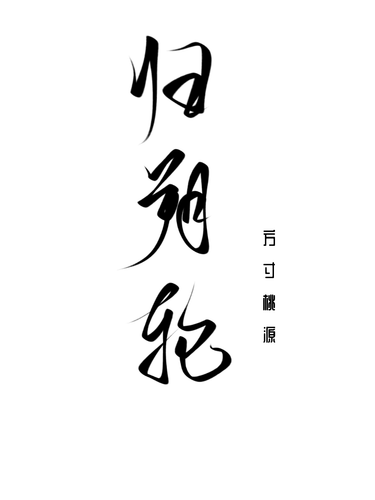 归朔轮
方寸桃源